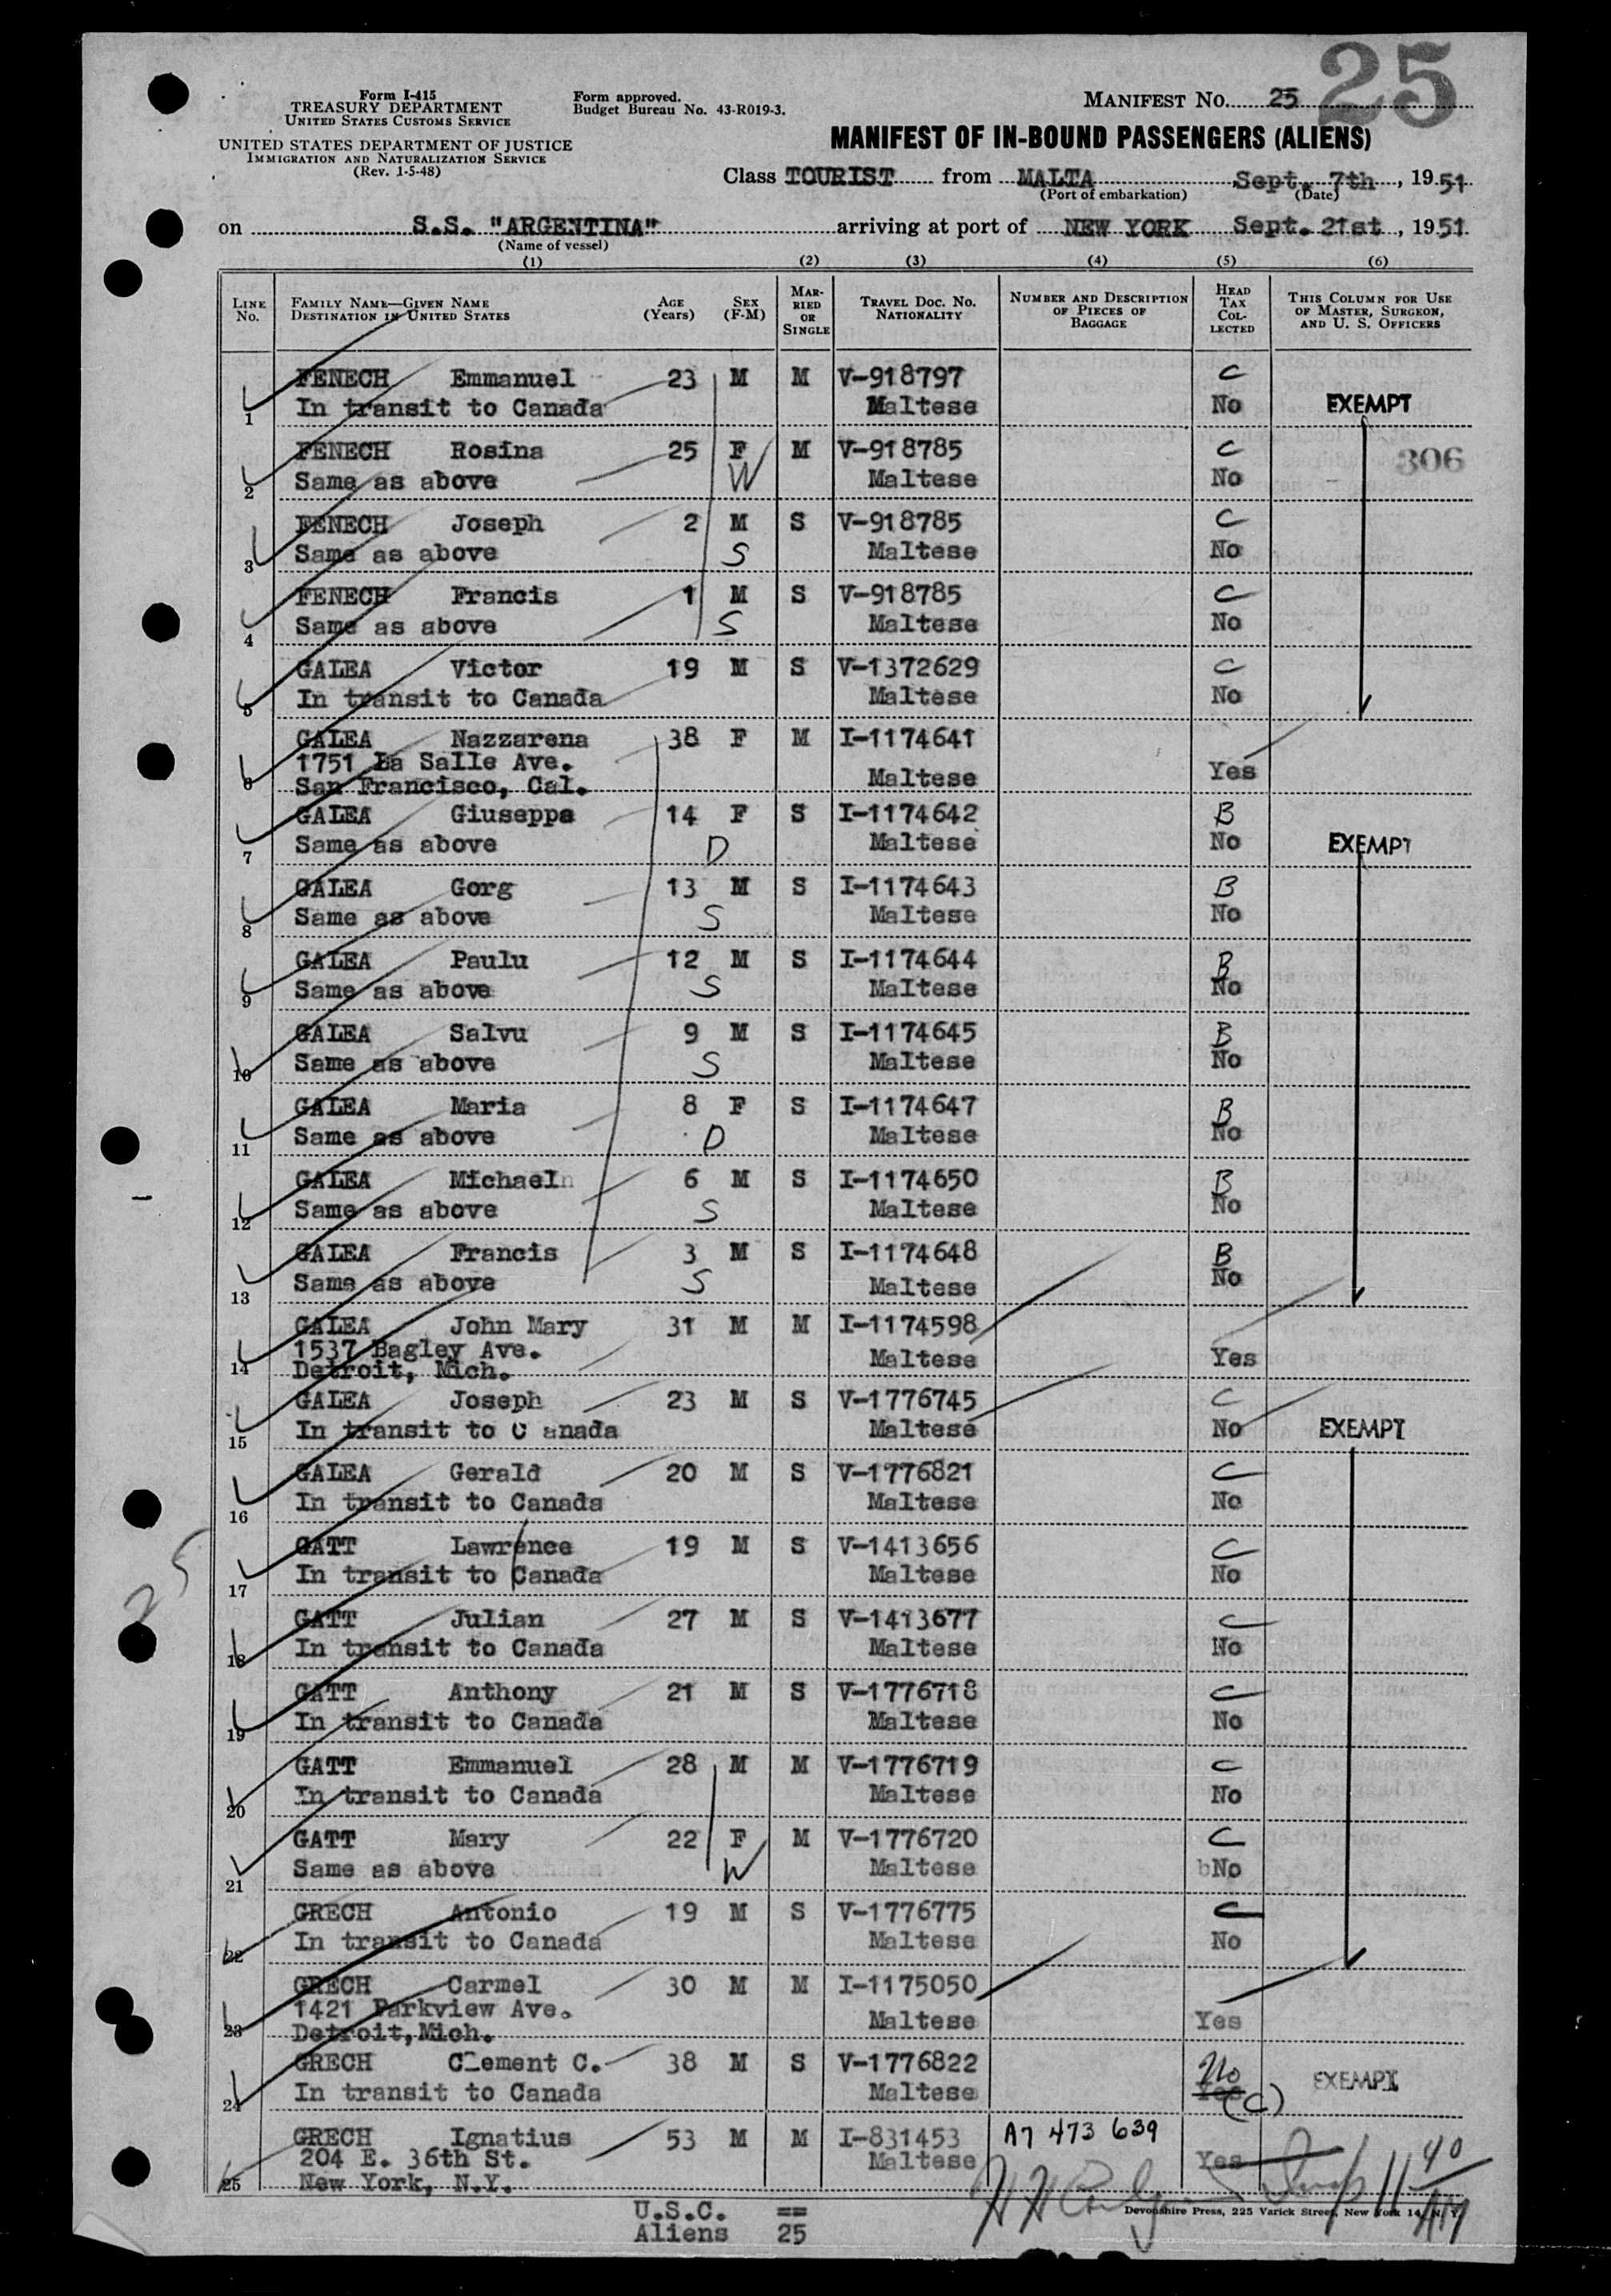 25
Form I-415
TREASURY DEPARTMENT
UNITED STATES CUSTOMS SERVICE
UNITED STATES DEPARTMENT OF JUSTICE
IMMIGRATION AND NATURALIZATION SERVICE
(Rev. 1-5-48)
Form approved.
Budget Bureau No. 43-R019-3.
MANIFEST NO. 25
MANIFEST OF IN-BOUND PASSENGERS (ALIENS)
Class TOURIST from MALTA, Sept. 7th, 1951
(Port of embarkation) (Date)
on S.S. "ARGENTINA" arriving at port of NEW YORK Sept. 21st, 1951
(Name of vessel)
(1) (2) (3) (4) (5) (6)
LINE NO. FAMILY NAME—GIVEN NAME DESTINATION IN UNITED STATES AGE (YEARS) SEX (F-M) MARRIED OR SINGLE TRAVEL DOC. NO. NATIONALITY NUMBER AND DESCRIPTION OF PIECES OF BAGGAGE HEAD TAX COLLECTED THIS COLUMN FOR USE OF MASTER, SURGEON, AND U. S. OFFICERS
FENECH Emmanuel 23 M M V-918797 C
1 In transit to Canada Maltese No EXEMPT
FENECH Rosina 25 F M V-918785 C 306
2 Same as above W Maltese No
FENECH Joseph 2 M S V-918785 C
3 Same as above S Maltese No
FENECH Francis 1 M S V-918785 C
4 Same as above S Maltese No
GALEA Victor 19 M S V-1372629 C
5 In transit to Canada Maltese No
GALEA Nazzarena 38 F M I-1174641
1751 La Salle Ave.
6 San Francisco, Cal. Maltese Yes
GALEA Giuseppa 14 F S I-1174642 B
7 Same as above D Maltese No EXEMPT
GALEA Gorg 13 M S I-1174643 B
8 Same as above S Maltese No
GALEA Paulu 12 M S I-1174644 B
9 Same as above S Maltese No
GALEA Salvu 9 M S I-1174645 B
10 Same as above S Maltese No
GALEA Maria 8 F S I-1174647 B
11 Same as above D Maltese No
GALEA Michael 6 M S I-1174650 B
12 Same as above S Maltese No
GALEA Francis 3 M S I-1174648 B
13 Same as above S Maltese No
GALEA John Mary 31 M M I-1174598
1537 Bagley Ave.
14 Detroit, Mich. Maltese Yes
GALEA Joseph 23 M S V-1776745 C
15 In transit to C anada Maltese No EXEMPT
GALEA Gerald 20 M S V-1776821 C
16 In transit to Canada Maltese No
GATT Lawrence 19 M S V-1413656 C
17 In transit to Canada Maltese No
25
GATT Julian 27 M S V-1413677 C
18 In transit to Canada Maltese No
GATT Anthony 21 M S V-1776718 C
19 In transit to Canada Maltese No
GATT Emmanuel 28 M M V-1776719 C
20 In transit to Canada Maltese No
GATT Mary 22 F M V-1776720 C
21 Same as above W Maltese bNo
GRECH Antonio 19 M S V-1776775 C
22 In transit to Canada Maltese No
GRECH Carmel 30 M M I-1175050
1421 Parkview Ave.
23 Detroit,Mich. Maltese Yes
GRECH Clement C. 38 M S V-1776822 No
24 In transit to Canada Maltese Yes (C) EXEMPT
GRECH Ignatius 53 M M I-831453 A7 473 639
204 E. 36th St. Maltese Yes
25 New York, N.Y. Insp 11 40 AM
U.S.C. ==
Aliens 25
Devonshire Press, 225 Varick Street, New York 14, N. Y.